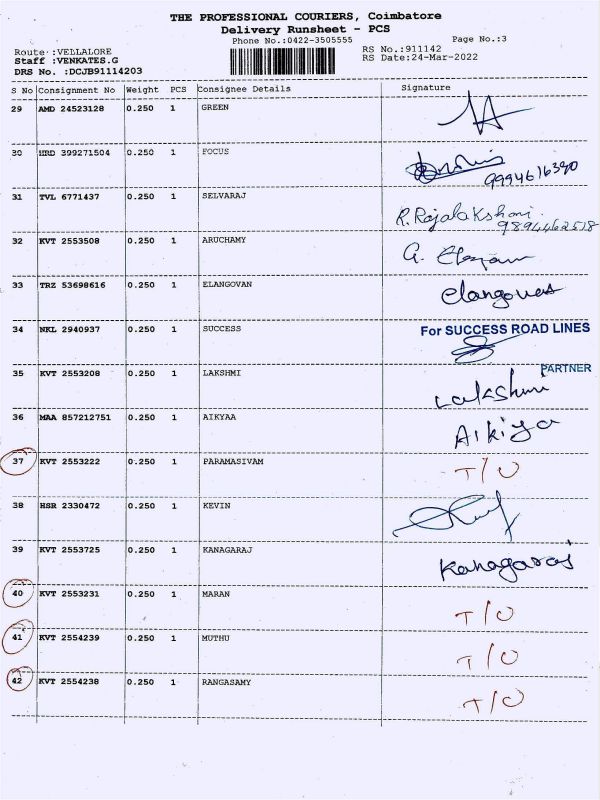 THE PROFESSIONAL COURIERS, Coimbatore
Delivery Runsheet - PCS
Phone No.:0422-3505555 Page No.:3
Route :VELLALORE RS No.:911142
Staff :VENKATES.G RS Date:24-Mar-2022
DRS No. :DCJB91114203
S No Consignment No Weight PCS Consignee Details Signature
29 AMD 24523128 0.250 1 GREEN
30 HRD 399271504 0.250 1 FOCUS
9994616390
31 TVL 6771437 0.250 1 SELVARAJ R. Rajalakshmi
9894462518
32 KVT 2553508 0.250 1 ARUCHAMY G.
33 TRZ 53698616 0.250 1 ELANGOVAN elangovan
34 NKL 2940937 0.250 1 SUCCESS For SUCCESS ROAD LINES
PARTNER
35 KVT 2553208 0.250 1 LAKSHMI Lakshmi
36 MAA 857212751 0.250 1 AIKYAA Aikiya
37 KVT 2553222 0.250 1 PARAMASIVAM T/O
38 HSR 2330472 0.250 1 KEVIN
39 KVT 2553725 0.250 1 KANAGARAJ Kanagaraj
40 KVT 2553231 0.250 1 MARAN T/O
41 KVT 2554239 0.250 1 MUTHU T/O
42 KVT 2554238 0.250 1 RANGASAMY T/O